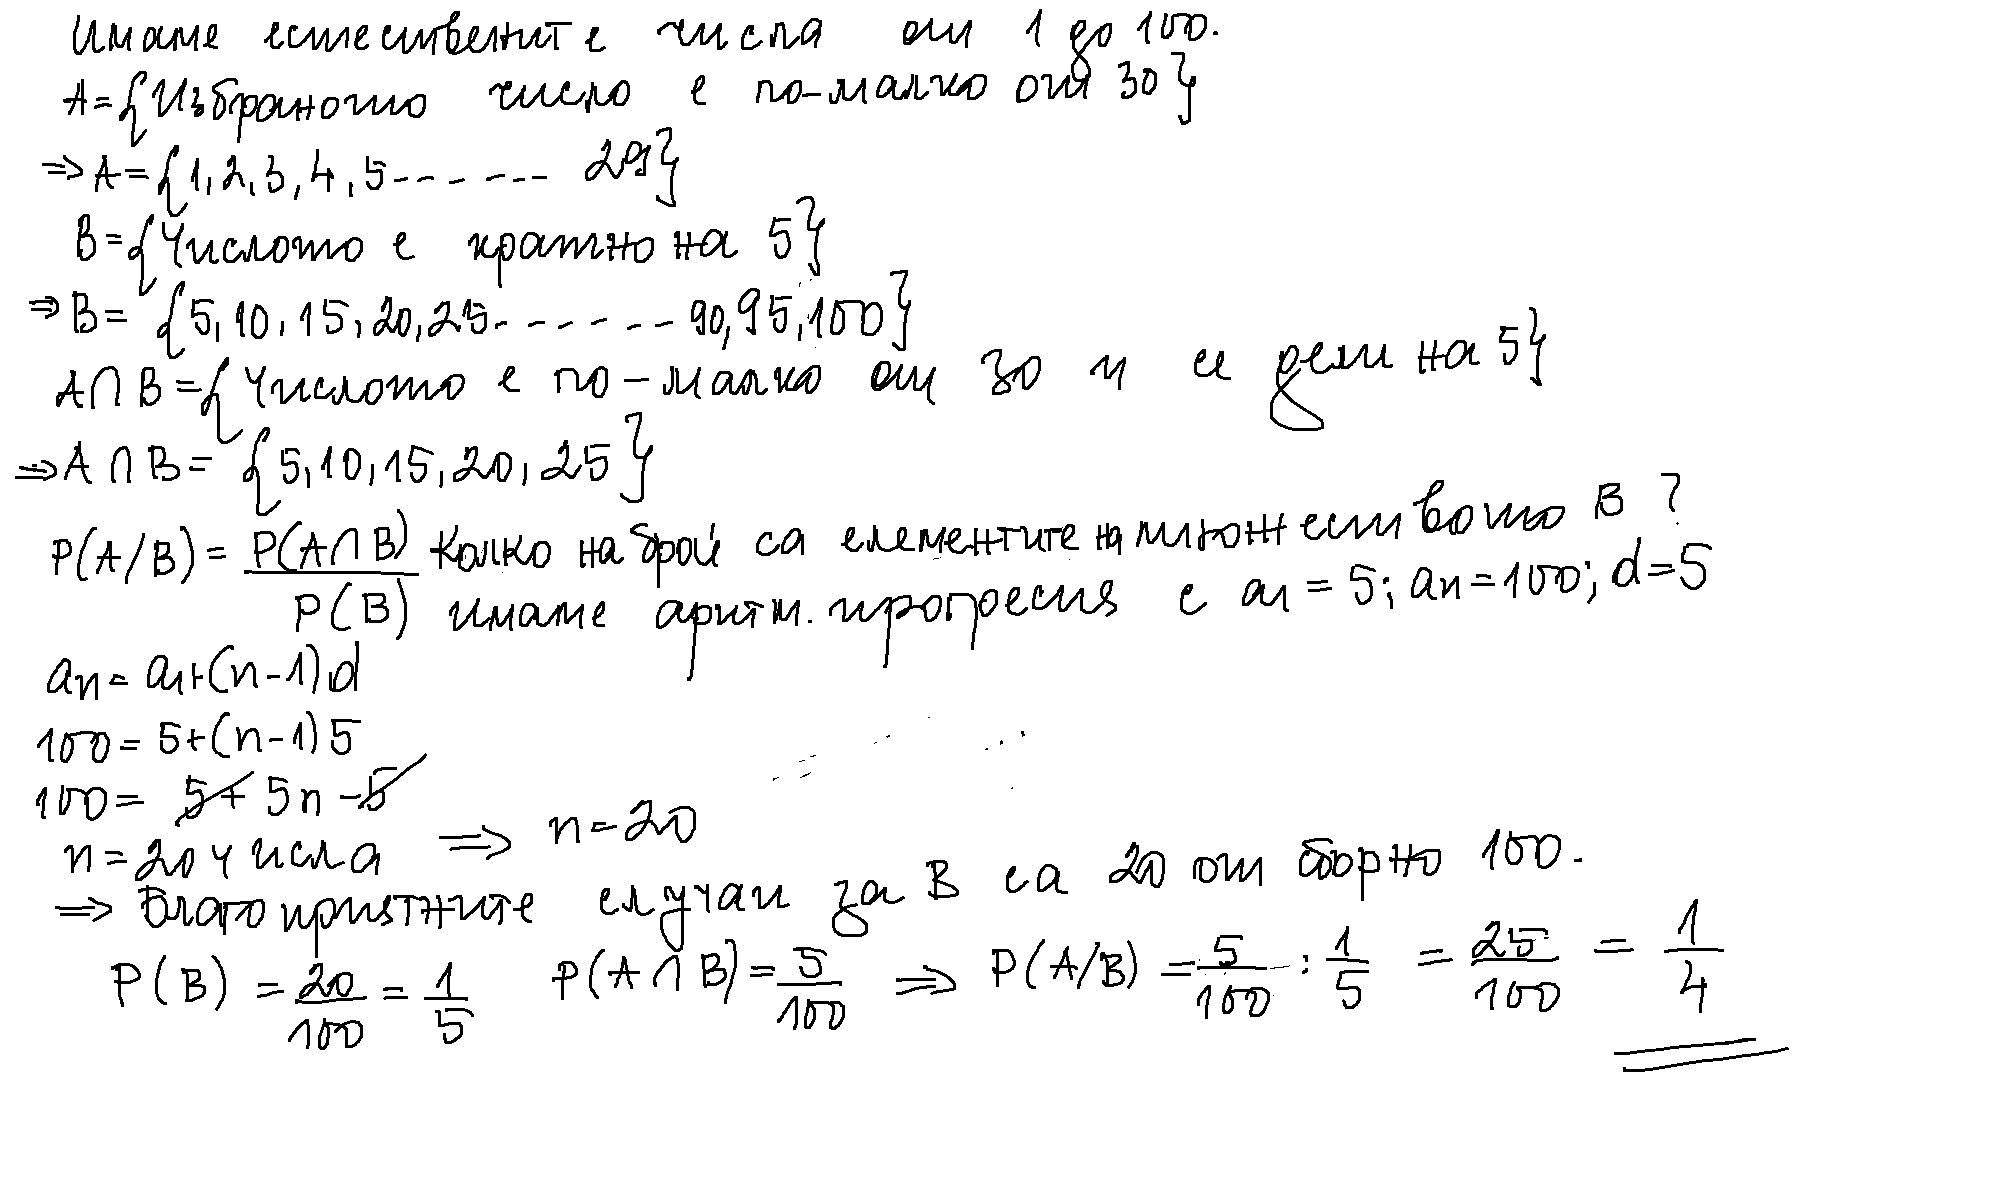 Имаме естествените числа от 1 до 100.
A={Избраното число е по-малко от 30}
⇒A={1,2,3,4,5------- 29}
B={Числото е кратно на 5}
⇒B= {5,10,15,20,25------90,95,100}
A∩B={Числото е по-малко от 30 и се дели на 5}
⇒A∩B= {5,10,15,20,25}
P(A/B)= P(A∩B)/P(B) Колко на брой са елементите на множеството B?
имаме аритм. прогресия с a1=5; an=100; d=5
an=a1+(n-1)d
100=5+(n-1)5
100= 5+5n-5
n=20 числа ⇒ n=20
⇒ Благоприятните случаи за B са 20 от общо 100.
P(B)=20/100=1/5 P(A∩B)=5/100 ⇒ P(A/B)=5/100:1/5=25/100=1/4